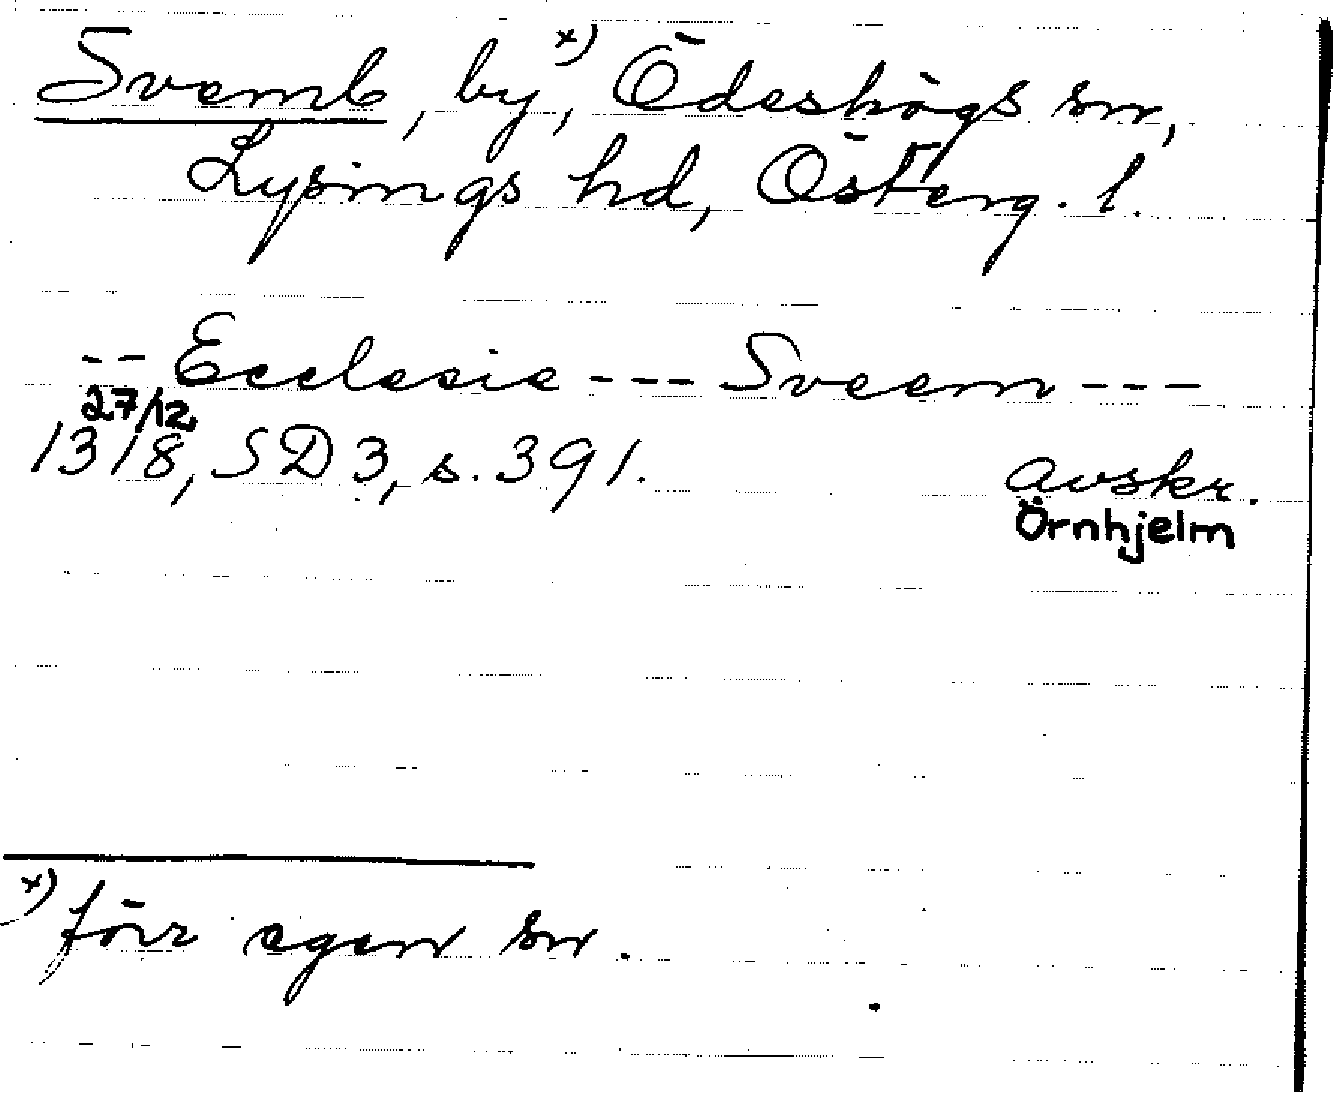 Svemb, by, x) Ödeshögs sn,
Lysings hd, Österg. l.
-- Ecclesie --- Sveem ---
27/12
1318, SD 3, s. 391.
avskr.
Örnhjelm
x) förr egen sn.